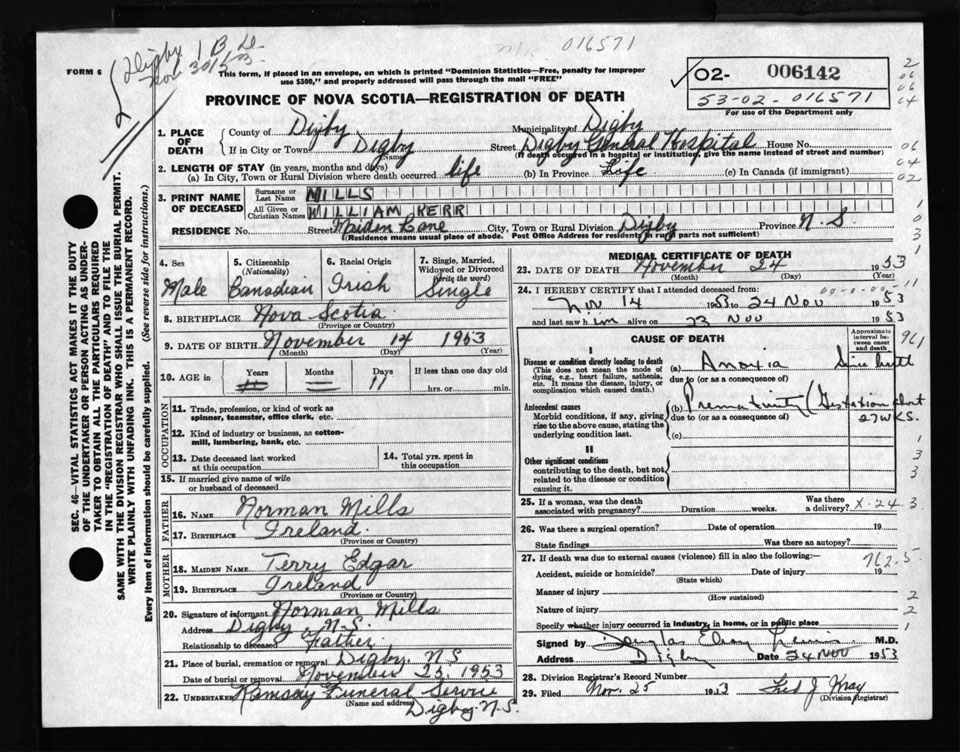 016571
Digby
FORM 6
This form, if placed in an envelope, on which is printed "Dominion Statistics—Free, penalty for improper
use $300," and properly addressed will pass through the mail "FREE"
02- 006142
53-02-016571
For use of the Department only
PROVINCE OF NOVA SCOTIA—REGISTRATION OF DEATH
1. PLACE OF DEATH
County of Digby Municipality of Digby
If in City or Town Digby (Name) Street Digby General Hospital House No.
(If death occurred in a hospital or institution, give the name instead of street and number)
2. LENGTH OF STAY (in years, months and days)
(a) In City, Town or Rural Division where death occurred life (b) In Province Life (c) In Canada (if immigrant)
3. PRINT NAME OF DECEASED
Surname or Last Name MILLS
All Given or Christian Names WILLIAM KERR
RESIDENCE No. Street Maiden Lane City, Town or Rural Division Digby Province N.S
(Residence means usual place of abode. Post Office Address for residents in rural parts not sufficient)
4. Sex Male
5. Citizenship (Nationality) Canadian
6. Racial Origin Irish
7. Single, Married, Widowed or Divorced (Write the word) Single
8. BIRTHPLACE Nova Scotia
(Province or Country)
9. DATE OF BIRTH November 14 1953
(Month) (Day) (Year)
10. AGE in Years Months Days 11 If less than one day old
hrs. or min.
OCCUPATION
11. Trade, profession, or kind of work as
spinner, teamster, office clerk, etc.
12. Kind of industry or business, as cotton-
mill, lumbering, bank, etc.
13. Date deceased last worked
at this occupation
14. Total yrs. spent in
this occupation
15. If married give name of wife
or husband of deceased
FATHER
16. NAME Norman Mills
17. BIRTHPLACE Ireland
(Province or Country)
MOTHER
18. MAIDEN NAME Terry Edgar
19. BIRTHPLACE Ireland
(Province or Country)
20. Signature of informant Norman Mills
Address Digby N.S.
Relationship to deceased Father
21. Place of burial, cremation or removal Digby, N.S
Date of burial or removal November 25, 1953
22. UNDERTAKER Ramsay Funeral Service
(Name and address) Digby N.S.
MEDICAL CERTIFICATE OF DEATH
23. DATE OF DEATH November 24 1953
(Month) (Day)
24. I HEREBY CERTIFY that I attended deceased from:
Nov 14 1953 to 24 Nov 1953
and last saw him alive on 23 Nov 1953
CAUSE OF DEATH
Approximate interval between onset and death
I
Disease or condition directly leading to death
(This does not mean the mode of
dying, e.g., heart failure, asthenia,
etc. It means the disease, injury, or
complication which caused death.)
(a) Anoxia Since birth
due to (or as a consequence of)
Antecedent causes
Morbid conditions, if any, giving
rise to the above cause, stating the
underlying condition last.
(b) Prematurity (Gestation about
27 WKS.
due to (or as a consequence of)
(c)
II
Other significant conditions
contributing to the death, but not
related to the disease or condition
causing it.
961
25. If a woman, was the death
associated with pregnancy? Duration weeks. Was there
a delivery? X-24.3
26. Was there a surgical operation? Date of operation 19
State findings Was there an autopsy?
27. If death was due to external causes (violence) fill in also the following:— 762.5
Accident, suicide or homicide? Date of injury 19
(State which)
Manner of injury
(How sustained)
Nature of injury
Specify whether injury occurred in industry, in home, or in public place
Signed by Douglas M.D.
Address Digby Date 24 Nov 1953
28. Division Registrar's Record Number
29. Filed Nov. 25 1953 Fred J. Kray
(Division Registrar)
SEC. 46—VITAL STATISTICS ACT MAKES IT THE DUTY
OF THE UNDERTAKER OR PERSON ACTING AS UNDER-
TAKER TO OBTAIN ALL THE PARTICULARS REQUIRED
IN THE "REGISTRATION OF DEATH" AND TO FILE THE
SAME WITH THE DIVISION REGISTRAR WHO SHALL ISSUE THE BURIAL PERMIT.
WRITE PLAINLY WITH UNFADING INK. THIS IS A PERMANENT RECORD.
Every item of Information should be carefully supplied. (See reverse side for instructions.)